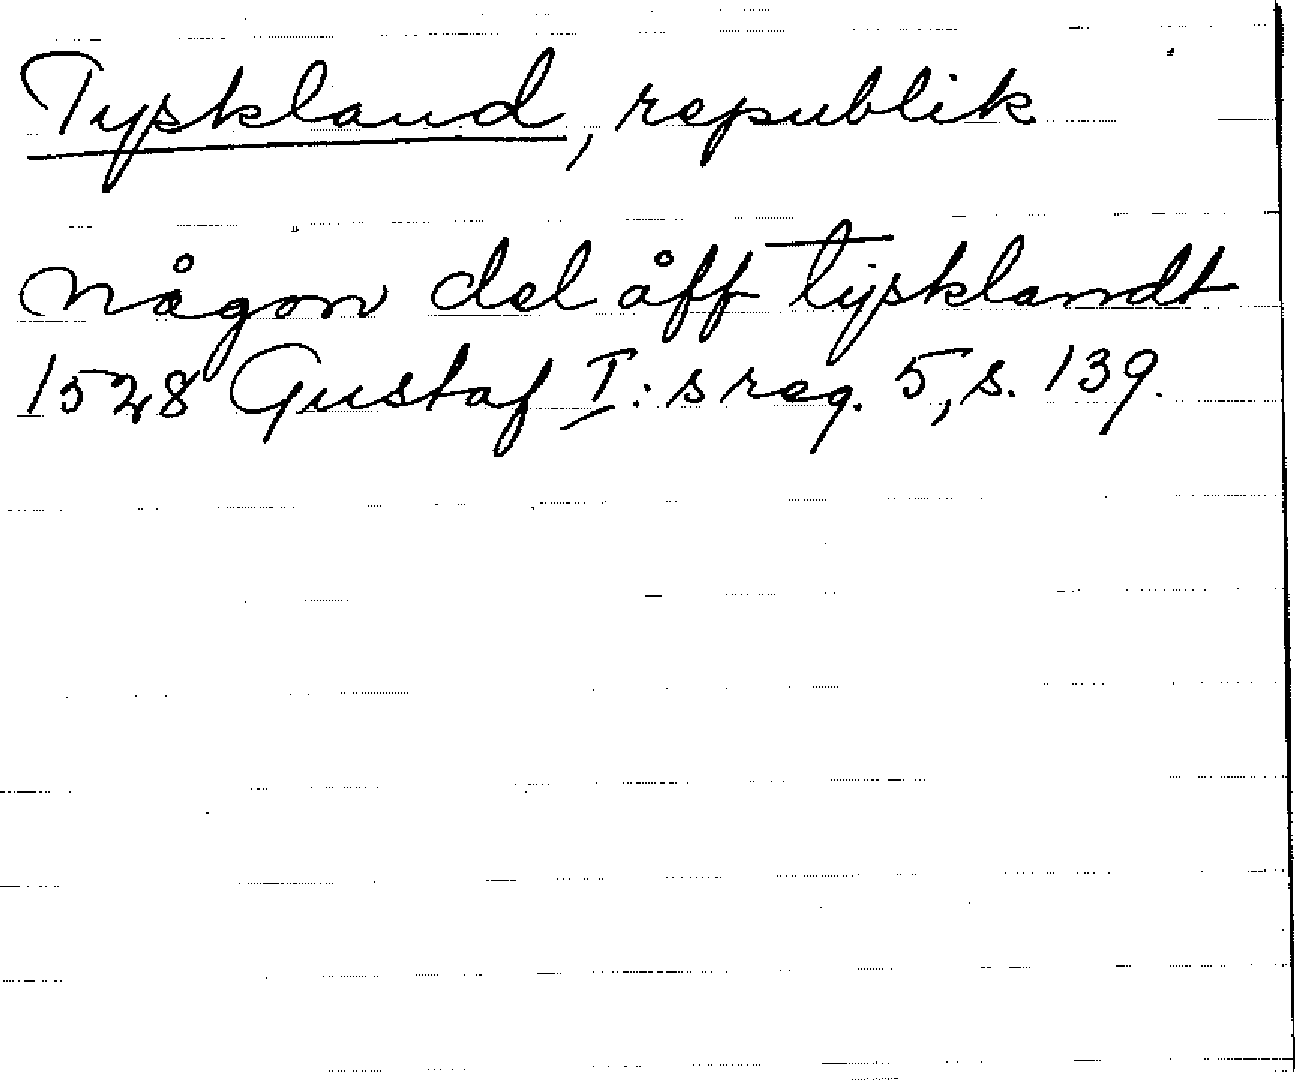 Tyskland, republik
någon del åff tysklandt
1528 Gustaf I:s reg. 5, s. 139.